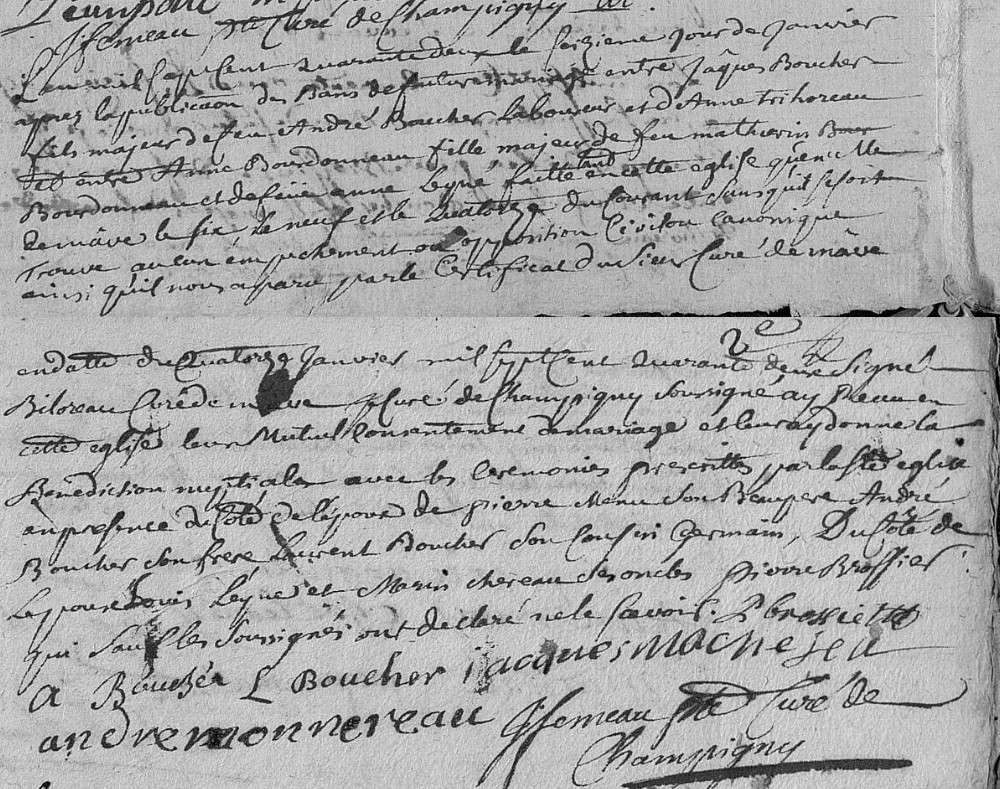 Curé de Champigny
L'an mil sept cent quarante deux le seizieme jour de janvier
apres la publication des Bans de futur mariage entre jaques Boucher
fils majeur de feu André Boucher Laboureur et d'Anne trihoreau
et entre Anne Bourdonneau fille majeure de feu mathurin Bour
Bourdonneau et defeue anne Legué faitte tant en cette eglise qu'en celle
de mâve le six le neuf et le quatorze du courant sans qu'il se soit
trouve aucun empechement ou opposition Civil ou Canonique
ainsi qu'il nous a paru par le Certificat du Sieur Curé de mâve
en datte du Quatorze janvier mil sept cent quarante deux Signé
Biloreau Curé de mave Curé de Champigny soussigné ay Receu en
cette eglise leur Mutuel Consentement de mariage et leur ay donne la
Benediction nuptiale avec les Ceremonies prescrittes par la Ste eglise
en presence du Coté de l'époux de pierre Menu son Beaupere André
Boucher son frere Laurent Boucher son Cousin Germain, Du Côté de
Lepouse Louis Legué et Marin chereau ses oncles pierre Brossier
qui sauf les soussignés ont declaré ne le scavoir. P brossier
A Boucher L Boucher jacques
andre monnereau Curé de
Champigny